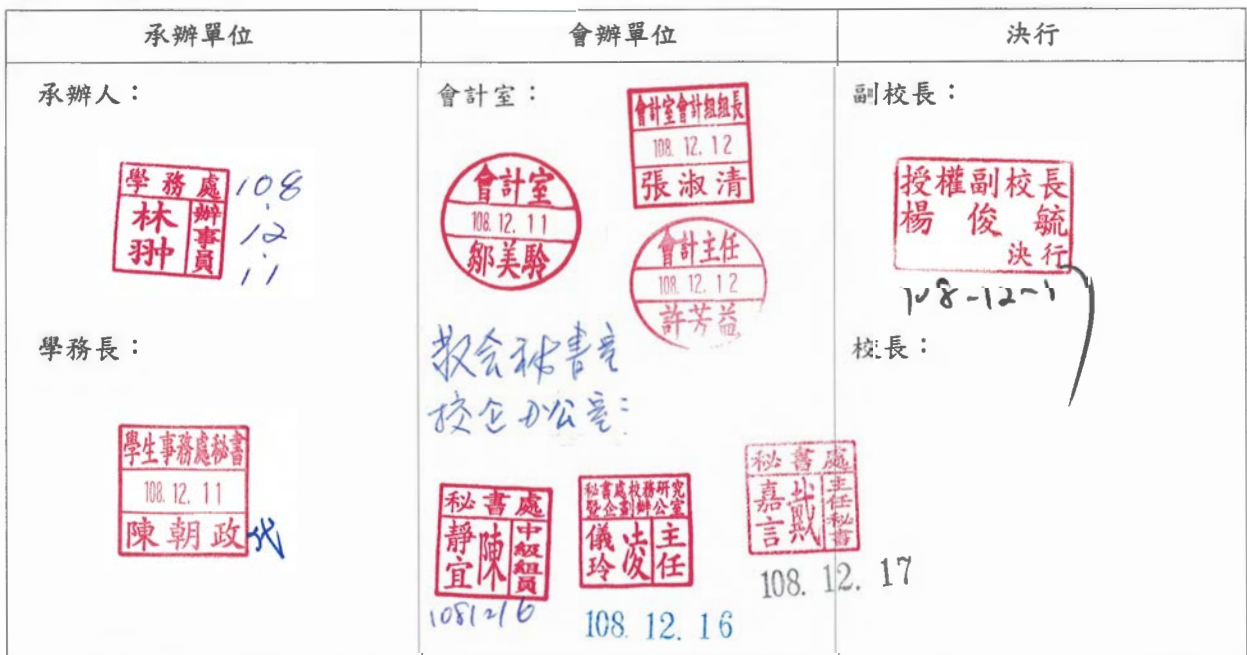 承辦單位
會辦單位
決行
承辦人：
學務處
林翀
辦事員
108.12.11
學務長：
學生事務處秘書
108.12.11
陳朝政
代
會計室：
會計室會計組組長
108.12.12
張淑清
會計室
108.12.11
鄒美齡
會計主任
108.12.12
許芳益
敬会祕書室
校企办公室：
秘書處
陳靜宜
中級組員
1081216
秘書處校務研究
暨企劃辦公室
凌儀玲
主任
108.12.16
秘書處
戴嘉言
主任秘書
108.12.17
副校長：
授權副校長
楊俊毓
決行
108-12-17
校長：